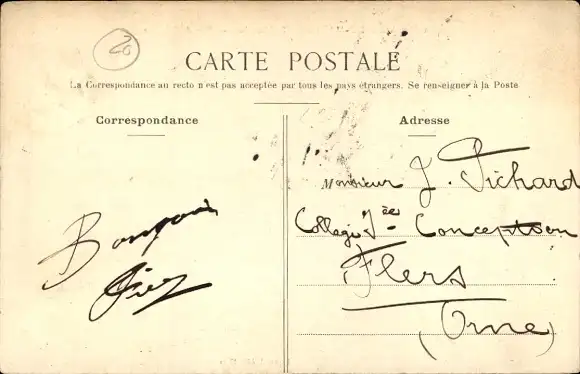 20
CARTE POSTALE
La Correspondance au recto n'est pas acceptée par tous les pays étrangers. Se renseigner à la Poste
Correspondance
Adresse
Monsieur J. Pichard
College Iée Conception
Flers
(Orne)
Bonjour